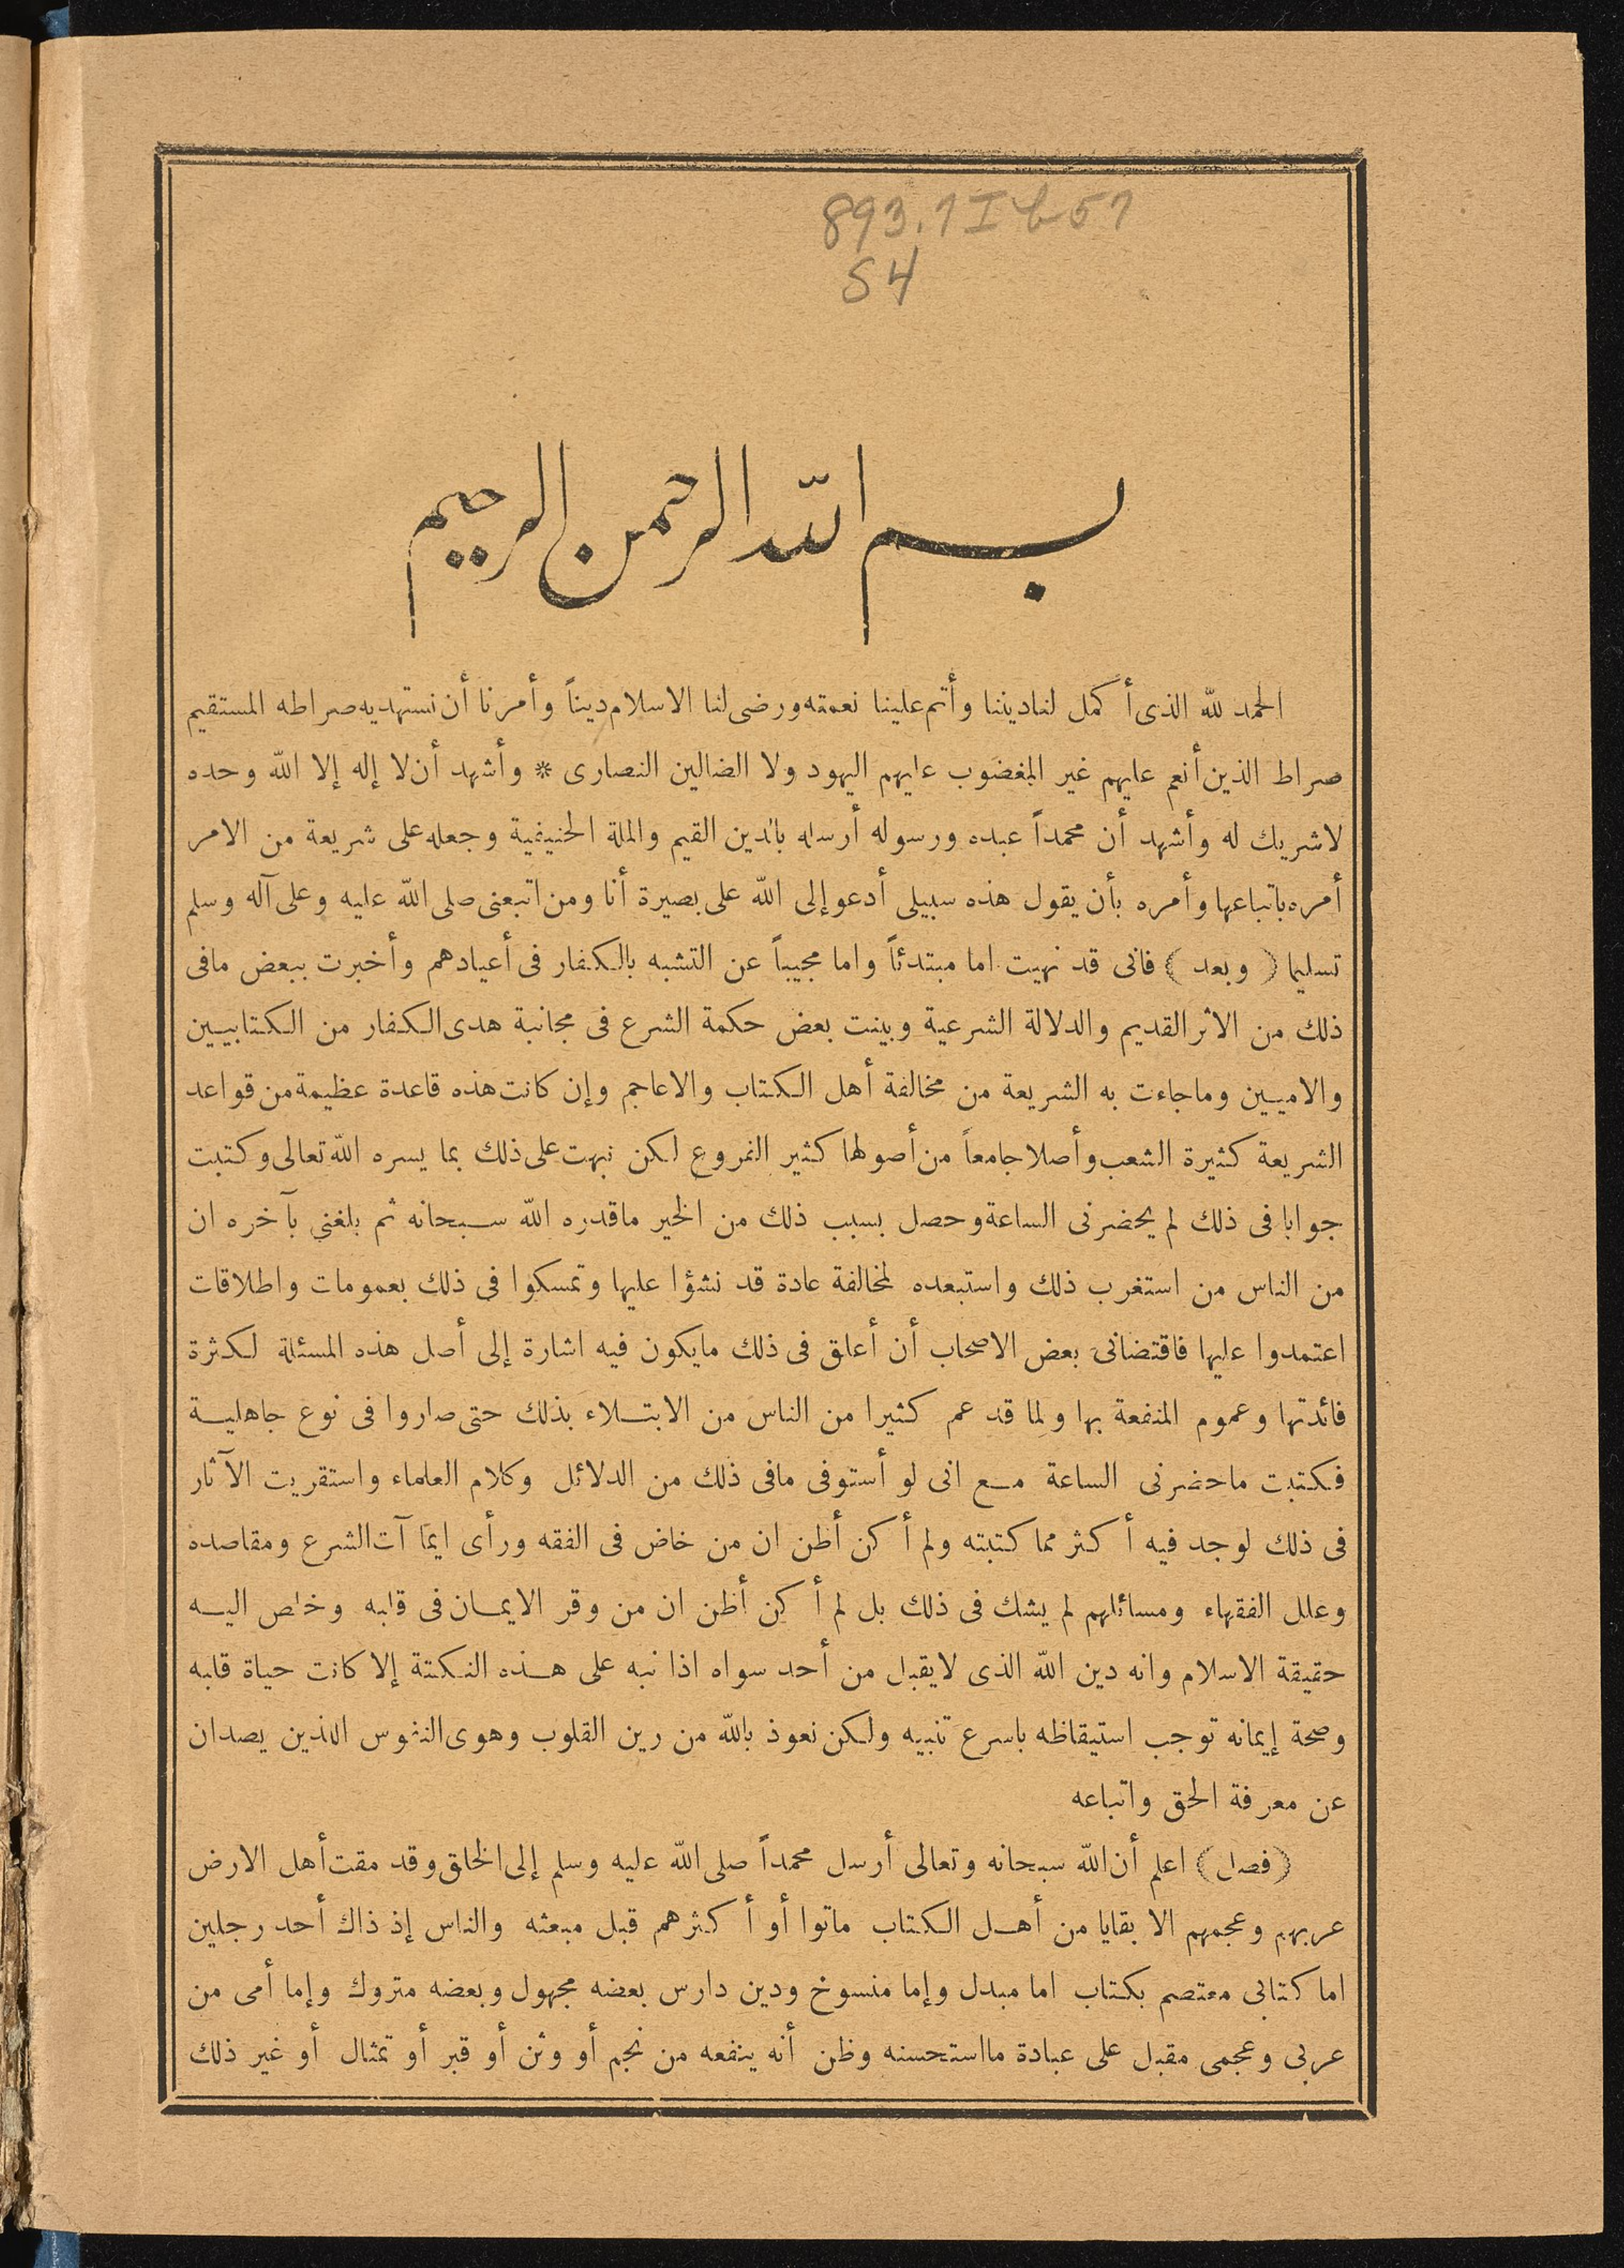 893.7Ib57
S4
بسم الله الرحمن الرحيم
الحمد لله الذى أكمل لنا ديننا وأتم علينا نعمته ورضى لنا الاسلام ديناً وأمرنا أن نستهديه صراطه المستقيم
صراط الذين أنعم عليهم غير المغضوب عليهم اليهود ولا الضالين النصارى * وأشهد أن لا إله إلا الله وحده
لا شريك له وأشهد أن محمداً عبده ورسوله أرسله بالدين القيم والملة الحنيفية وجعله على شريعة من الامر
أمره باتباعها وأمره بأن يقول هذه سبيلى أدعو إلى الله على بصيرة أنا ومن اتبعنى صلى الله عليه وعلى آله وسلم
تسليما (وبعد) فانى قد نهيت اما مبتدئاً واما مجيباً عن التشبه بالكفار فى أعيادهم وأخبرت ببعض مافى
ذلك من الاثر القديم والدلالة الشرعية وبينت بعض حكمة الشرع فى مجانبة هدى الكفار من الكتابيين
والاميين وما جاءت به الشريعة من مخالفة أهل الكتاب والاعاجم وإن كانت هذه قاعدة عظيمة من قواعد
الشريعة كثيرة الشعب وأصلا جامعاً من أصولها كثير الفروع لكن نبهت على ذلك بما يسره الله تعالى وكتبت
جوابا فى ذلك لم يحضرنى الساعة وحصل بسبب ذلك من الخير ماقدره الله سبحانه ثم بلغني بآخره ان
من الناس من استغرب ذلك واستبعده لمخالفة عادة قد نشؤا عليها وتمسكوا فى ذلك بعمومات واطلاقات
اعتمدوا عليها فاقتضانى بعض الاصحاب أن أعلق فى ذلك مايكون فيه اشارة إلى أصل هذه المسئلة لكثرة
فائدتها وعموم المنفعة بها ولما قد عم كثيرا من الناس من الابتلاء بذلك حتى صاروا فى نوع جاهلية
فكتبت ماحضرنى الساعة مع انى لو أستوفى مافى ذلك من الدلائل وكلام العلماء واستقريت الآثار
فى ذلك لوجد فيه أكثر مما كتبته ولم أكن أظن ان من خاض فى الفقه ورأى ايمآآت الشرع ومقاصده
وعلل الفقهاء ومسائلهم لم يشك فى ذلك بل لم أكن أظن ان من وقر الايمان فى قلبه وخلص اليه
حقيقة الاسلام وانه دين الله الذى لايقبل من أحد سواه اذا نبه على هذه النكتة إلا كانت حياة قلبه
وصحة إيمانه توجب استيقاظه باسرع تنبيه ولكن نعوذ بالله من رين القلوب وهوى النفوس اللذين يصدان
عن معرفة الحق واتباعه
(فصل) اعلم أن الله سبحانه وتعالى أرسل محمداً صلى الله عليه وسلم إلى الخلق وقد مقت أهل الارض
عربهم وعجمهم الا بقايا من أهل الكتاب ماتوا أو أكثرهم قبل مبعثه والناس إذ ذاك أحد رجلين
اما كتابى معتصم بكتاب اما مبدل وإما منسوخ ودين دارس بعضه مجهول وبعضه متروك وإما أمى من
عربى وعجمى مقبل على عبادة مااستحسنه وظن أنه ينفعه من نجم أو وثن أو قبر أو تمثال أو غير ذلك